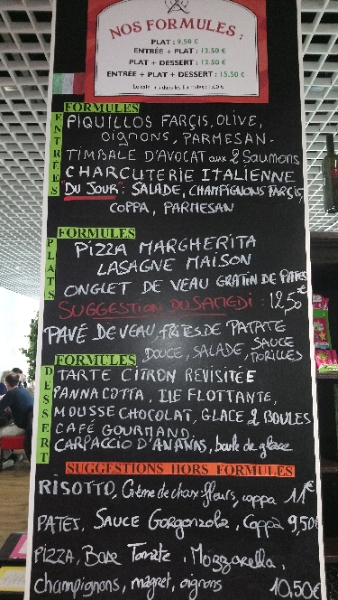 NOS FORMULES :
PLAT : 9.50 €
ENTRÉE + PLAT : 13.50 €
PLAT + DESSERT : 13.50 €
ENTRÉE + PLAT + DESSERT : 15.50 €
FORMULES
ENTRÉES
PIQUILLOS FARÇIS, OLIVE,
OIGNONS, PARMESAN.
TIMBALE D'AVOCAT aux 2 Saumons
CHARCUTERIE ITALIENNE
DU JOUR : SALADE, CHAMPIGNONS FARÇIS,
COPPA, PARMESAN
FORMULES
PLATS
PIZZA MARGHERITA
LASAGNE MAISON
ONGLET DE VEAU GRATIN DE PATES
SUGGESTION DU SAMEDI : 12,50€
PAVÉ DE VEAU, FRITES DE PATATE
DOUCE, SALADE, SAUCE
MORILLES
FORMULES
DESSERT
TARTE CITRON REVISITÉE
PANNA COTTA, ILE FLOTTANTE,
MOUSSE CHOCOLAT, GLACE 2 BOULES
CAFÉ GOURMAND,
CARPACCIO D'ANANAS, boule de glace
SUGGESTIONS HORS FORMULES
RISOTTO, Crème de choux fleurs, coppa 11€
PATES, Sauce Gorgonzola, Coppa 9,50€
PIZZA, Base Tomate, Mozzarella,
champignons, magret, oignons 10,50€